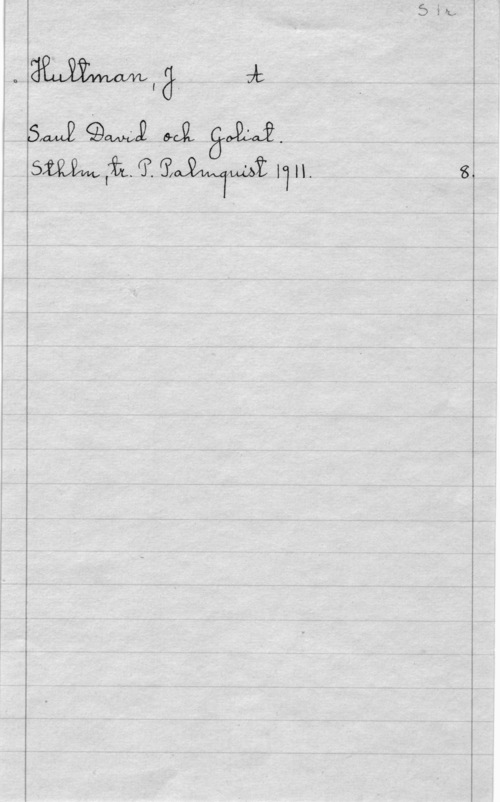 Hultman, J A
Saul David och Goliat.
Sthlm, tr. P. Palmquist 1911. 8.